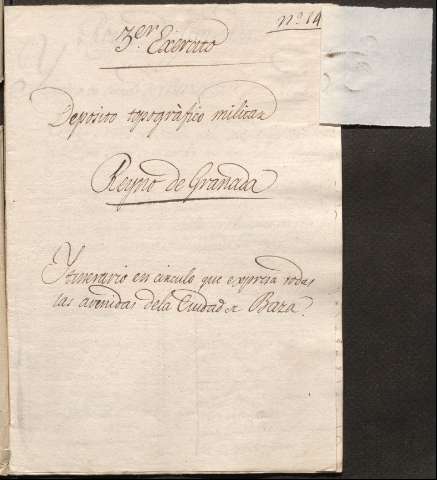 nº 14
3.er Exercito
Deposito topogràfico militar
Reyno de Granada
Ytinerario en circulo que expresa todas
las avenidas dela Ciudad de Baza.